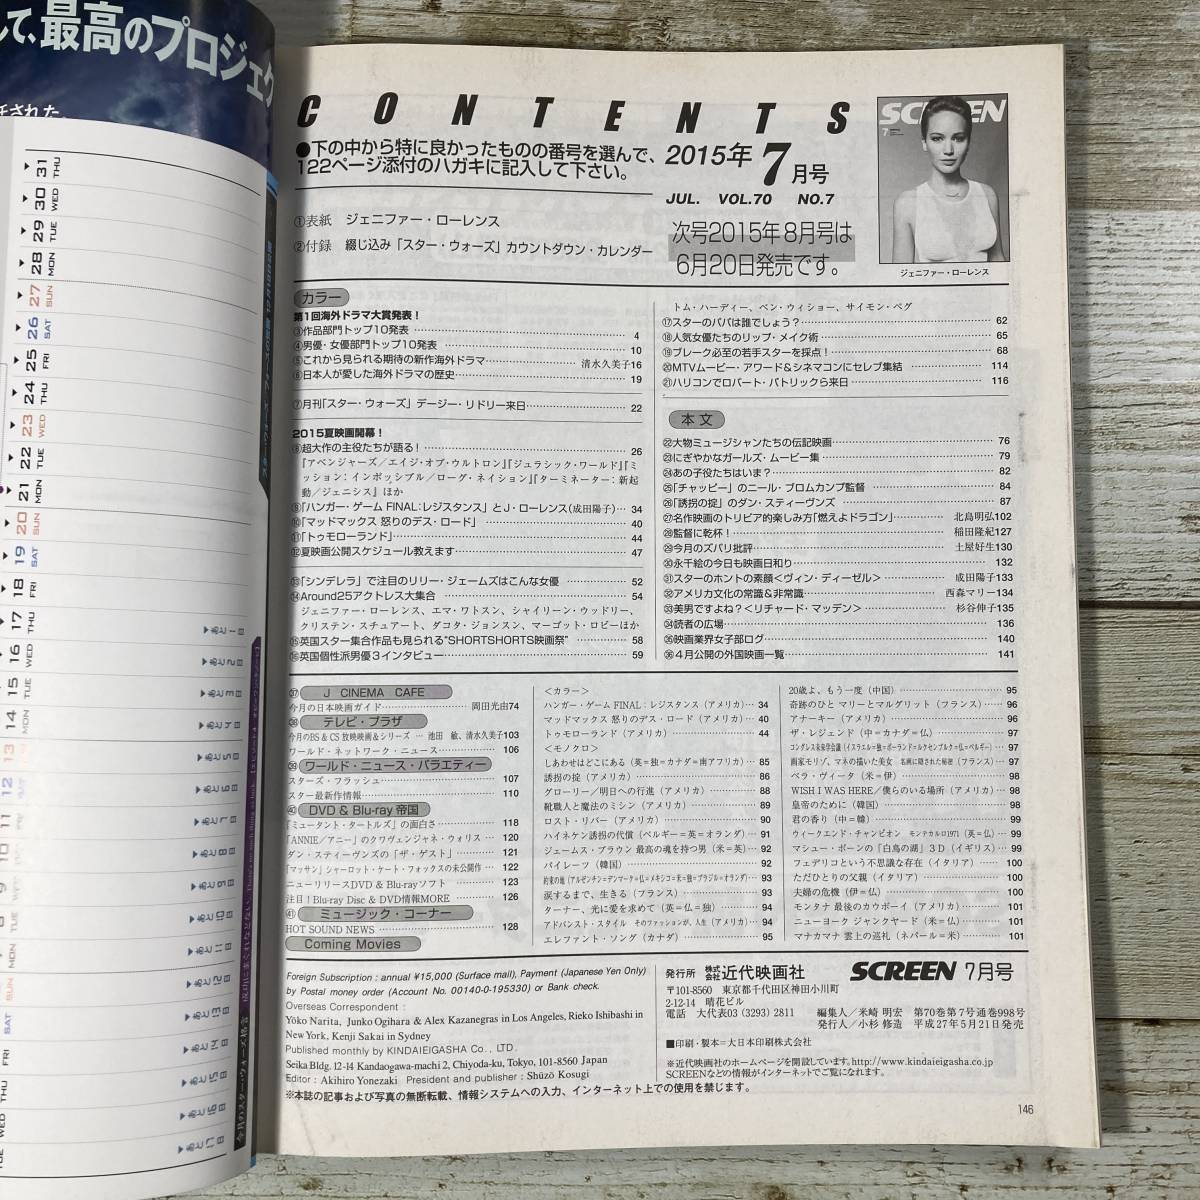 して、最高のプロジェク
託された
31 THU
30 WED
29 TUE
28 MON
27 SUN
26 SAT
25 FRI
24 THU
23 WED
22 TUE
21 MON
20 SUN
19 SAT
18 FRI
17 THU
16 WED
15 TUE
14 MON
13
12
あと1日
あと2日
あと3日
あと4日
あと5日
あと6日
あと7日
あと8日
あと9日
あと10日
あと11日
あと12日
あと13日
あと14日
あと15日
あと16日
あと17日
CONTENTS
●下の中から特に良かったものの番号を選んで、
122ページ添付のハガキに記入して下さい。
2015年7月号
JUL. VOL.70 NO.7
①表紙 ジェニファー・ローレンス
②付録 綴じ込み「スター・ウォーズ」カウントダウン・カレンダー
次号2015年8月号は
6月20日発売です。
SCREEN
7
ジェニファー・ローレンス
カラー
第1回海外ドラマ大賞発表！
③作品部門トップ10発表 4
④男優・女優部門トップ10発表 10
⑤これから見られる期待の新作海外ドラマ 清水久美子16
⑥日本人が愛した海外ドラマの歴史 19
⑦月刊「スター・ウォーズ」デージー・リドリー来日 22
2015夏映画開幕！
⑧超大作の主役たちが語る！ 26
『アベンジャーズ／エイジ・オブ・ウルトロン』『ジュラシック・ワールド』『ミ
ッション：インポッシブル／ローグ・ネイション』『ターミネーター：新起
動／ジェニシス』ほか
⑨「ハンガー・ゲーム FINAL：レジスタンス」とJ・ローレンス（成田陽子） 34
⑩「マッドマックス 怒りのデス・ロード」 40
⑪「トゥモローランド」 44
⑫夏映画公開スケジュール教えます 47
⑬「シンデレラ」で注目のリリー・ジェームズはこんな女優 52
⑭Around25アクトレス大集合 54
ジェニファー・ローレンス、エマ・ワトスン、シャイリーン・ウッドリー、
クリステン・スチュアート、ダコタ・ジョンスン、マーゴット・ロビーほか
⑮英国スター集合作品も見られる“SHORTSHORTS映画祭” 58
⑯英国個性派男優3インタビュー 59
トム・ハーディー、ベン・ウィショー、サイモン・ペグ
⑰スターのパパは誰でしょう？ 62
⑱人気女優たちのリップ・メイク術 65
⑲ブレーク必至の若手スターを採点！ 68
⑳MTVムービー・アワード＆シネマコンにセレブ集結 114
㉑ハリコンでロバート・パトリックら来日 116
本文
㉒大物ミュージシャンたちの伝記映画 76
㉓にぎやかなガールズ・ムービー集 79
㉔あの子役たちはいま？ 82
㉕「チャッピー」のニール・ブロムカンプ監督 84
㉖「誘拐の掟」のダン・スティーヴンズ 87
㉗名作映画のトリビア的楽しみ方「燃えよドラゴン」 北島明弘102
㉘監督に乾杯！ 稲田隆紀127
㉙今月のズバリ批評 土屋好生130
㉚永千絵の今日も映画日和り 132
㉛スターのホントの素顔＜ヴィン・ディーゼル＞ 成田陽子133
㉜アメリカ文化の常識＆非常識 西森マリー134
㉝美男ですよね？＜リチャード・マッデン＞ 杉谷伸子135
㉞読者の広場 136
㉟映画業界女子部ログ 140
㊱4月公開の外国映画一覧 141
㊲ J CINEMA CAFE
今月の日本映画ガイド 岡田光由74
㊳ テレビ・プラザ
今月のBS & CS 放映映画＆シリーズ 池田 敏、清水久美子103
ワールド・ネットワーク・ニュース 106
㊴ ワールド・ニュース・バラエティー
スターズ・フラッシュ 107
スター最新作情報 110
㊵ DVD & Blu-ray 帝国
「ミュータント・タートルズ」の面白さ 118
「ANNIE／アニー」のクワヴェンジャネ・ウォリス 120
ダン・スティーヴンズの「ザ・ゲスト」 121
「マッサン」シャーロット・ケート・フォックスの未公開作 122
ニューリリースDVD & Blu-rayソフト 123
注目！Blu-ray Disc & DVD情報MORE 126
㊶ ミュージック・コーナー
HOT SOUND NEWS 128
Coming Movies
＜カラー＞
ハンガー・ゲーム FINAL：レジスタンス（アメリカ） 34
マッドマックス 怒りのデス・ロード（アメリカ） 40
トゥモローランド（アメリカ） 44
＜モノクロ＞
しあわせはどこにある（英＝独＝カナダ＝南アフリカ） 85
誘拐の掟（アメリカ） 86
グローリー／明日への行進（アメリカ） 88
靴職人と魔法のミシン（アメリカ） 89
ロスト・リバー（アメリカ） 90
ハイネケン誘拐の代償（ベルギー＝英＝オランダ） 91
ジェームス・ブラウン 最高の魂を持つ男（米＝英） 92
パイレーツ（韓国） 92
約束の地（アルゼンチン＝デンマーク＝仏＝メキシコ＝米＝独＝ブラジル＝オランダ） 93
涙するまで、生きる（フランス） 93
ターナー、光に愛を求めて（英＝仏＝独） 94
アドバンスト・スタイル そのファッションが、人生（アメリカ） 94
エレファント・ソング（カナダ） 95
20歳よ、もう一度（中国） 95
奇跡のひと マリーとマルグリット（フランス） 96
アナーキー（アメリカ） 96
ザ・レジェンド（中＝カナダ＝仏） 97
コングレス未来学会議（イスラエル＝独＝ポーランド＝ルクセンブルク＝仏＝ベルギー） 97
画家モリゾ、マネの描いた美女 名画に隠された秘密（フランス） 97
ベラ・ヴィータ（米＝伊） 98
WISH I WAS HERE／僕らのいる場所（アメリカ） 98
皇帝のために（韓国） 98
君の香り（中＝韓） 99
ウィークエンド・チャンピオン モンテカルロ1971（英＝仏） 99
マシュー・ボーンの「白鳥の湖」3D（イギリス） 99
フェデリコという不思議な存在（イタリア） 100
ただひとりの父親（イタリア） 100
夫婦の危機（伊＝仏） 100
モンタナ 最後のカウボーイ（アメリカ） 101
ニューヨーク ジャンクヤード（米＝仏） 101
マナカマナ 雲上の巡礼（ネパール＝米） 101
Foreign Subscription : annual ¥15,000 (Surface mail), Payment (Japanese Yen Only)
by Postal money order (Account No. 00140-0-195330) or Bank check.
Overseas Correspondent :
Yōko Narita, Junko Ogihara & Alex Kazanegras in Los Angeles, Rieko Ishibashi in
New York, Kenji Sakai in Sydney
Published monthly by KINDAIEIGASHA Co., LTD.
Seika Bldg. 12-14 Kandaogawa-machi 2, Chiyoda-ku, Tokyo, 101-8560 Japan
Editor : Akihiro Yonezaki President and publisher : Shūzō Kosugi
※本誌の記事および写真の無断転載、情報システムへの入力、インターネット上での使用を禁じます。
発行所 株式会社 近代映画社 SCREEN 7月号
〒101-8560 東京都千代田区神田小川町
2-12-14 晴花ビル
電話 大代表03（3293）2811
編集人／米崎 明宏 第70巻第7号通巻998号
発行人／小杉 修造 平成27年5月21日発売
■印刷・製本＝大日本印刷株式会社
※近代映画社のホームページを開設しています。http://www.kindaieigasha.co.jp
SCREENなどの情報がインターネットでご覧になれます。
146